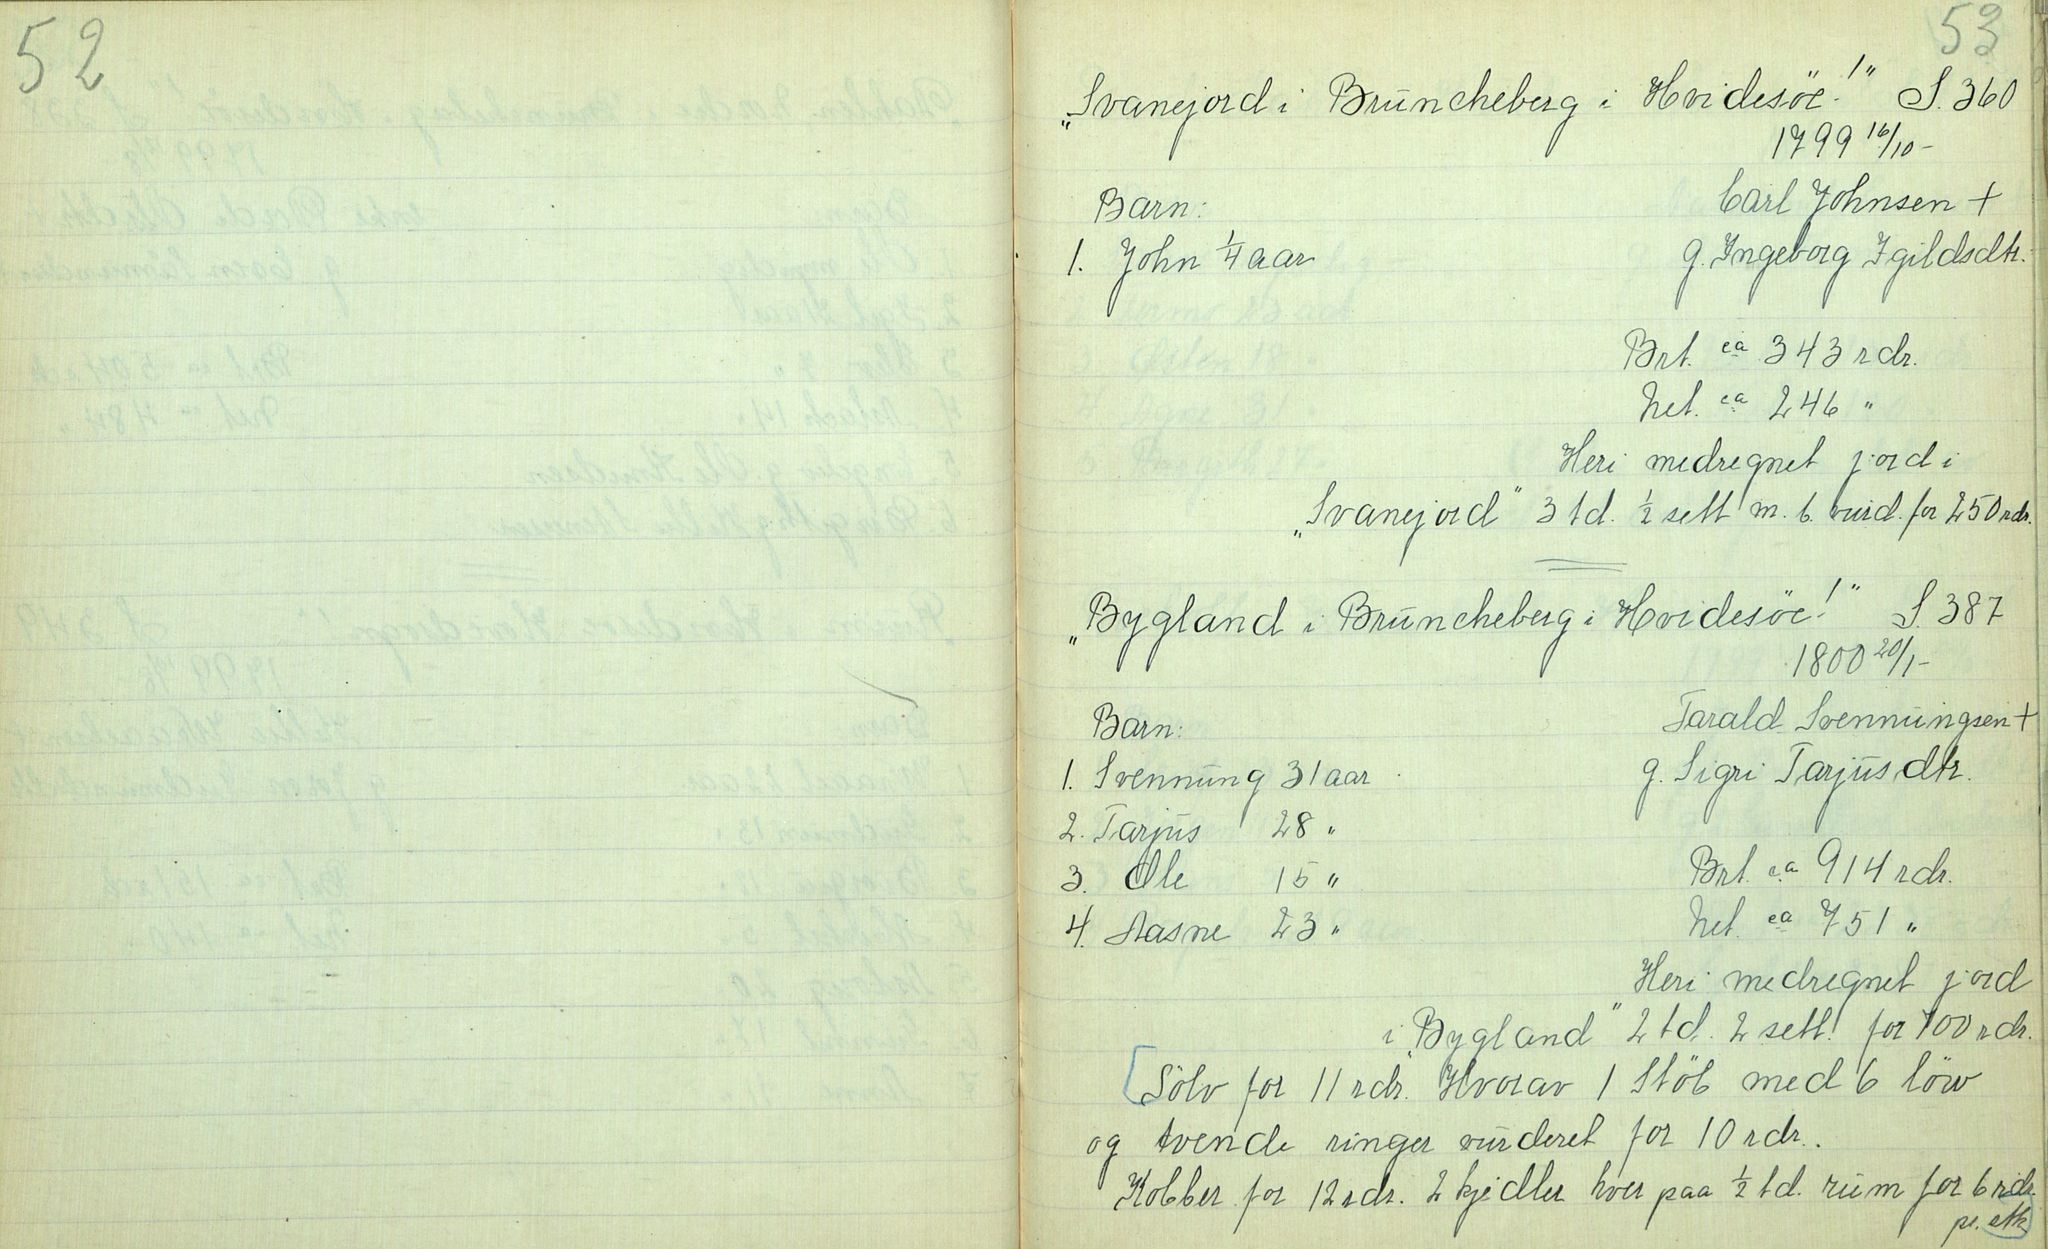 52
53
„Svanejord i Brŭncheberg i Hvidesöe!" S. 360
1799 16/10-
Barn: Carl Johnsen +
1. John 1/4 aar g. Ingeborg Igildsdtr.
Brt. ca 343 rdr.
Net. ca 246 "
Heri medregnet jord i
„Svanejord" 3 td. 1/2 sett m. b. vŭrd. for 250 rdr.
„Bygland i Brŭncheberg i Hvidesöe!" S. 387
1800 20/1-
Barn: Tarald Svennŭngsen +
1. Svennŭng 31 aar g. Sigri Tarjŭsdtr.
2. Tarjŭs 28 "
3. Ole 15 " Brt. ca 914 rdr.
4. Aasne 23 " Net. ca 751 "
Heri medregnet jord
i „Bygland" 2 td. 2 sett. for 700 rdr.
[Sölv for 11 rdr. Hvorav 1 Stöb med 6 löw
og tvende ringer vŭrderet for 10 rdr..
Kobber for 12 rdr. 2 kjedler hver paa 1/2 td. rŭm for 6 rdr.
pr. stk]